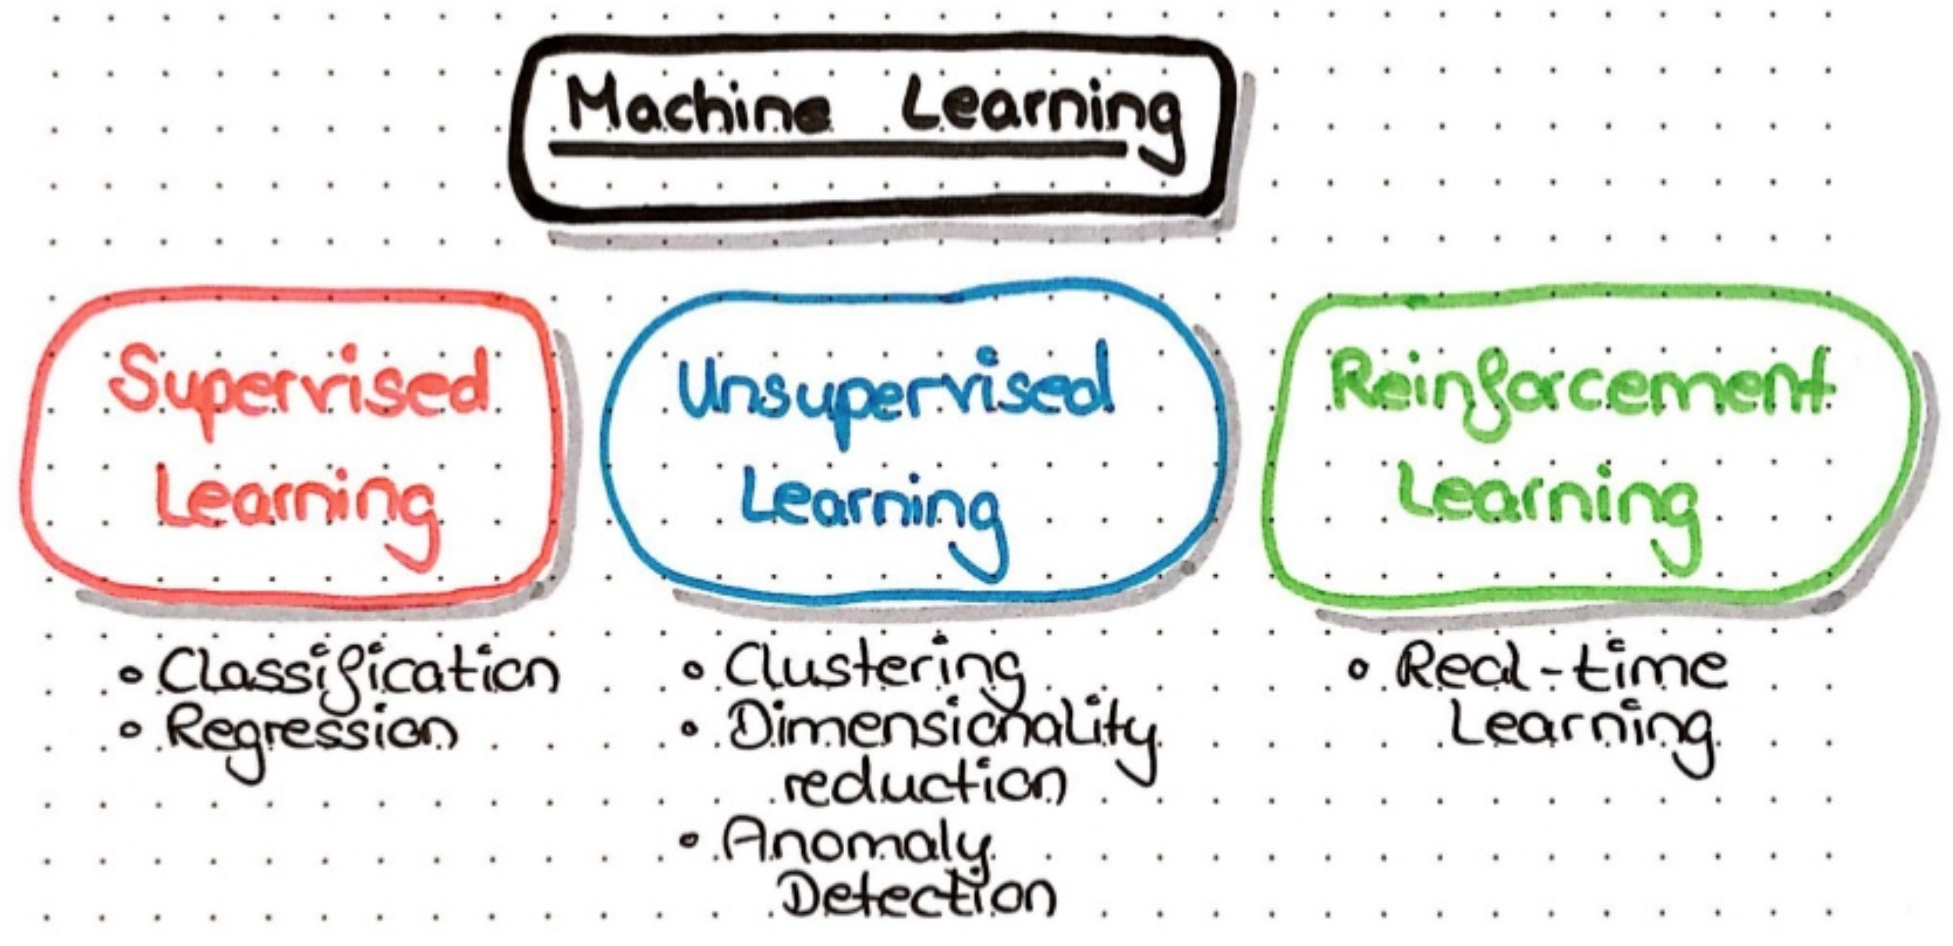 Machine Learning
Supervised
Learning
• Classification
• Regression
Unsupervised
Learning
• Clustering
• Dimensionality
reduction
• Anomaly
Detection
Reinforcement
Learning
• Real-time
Learning